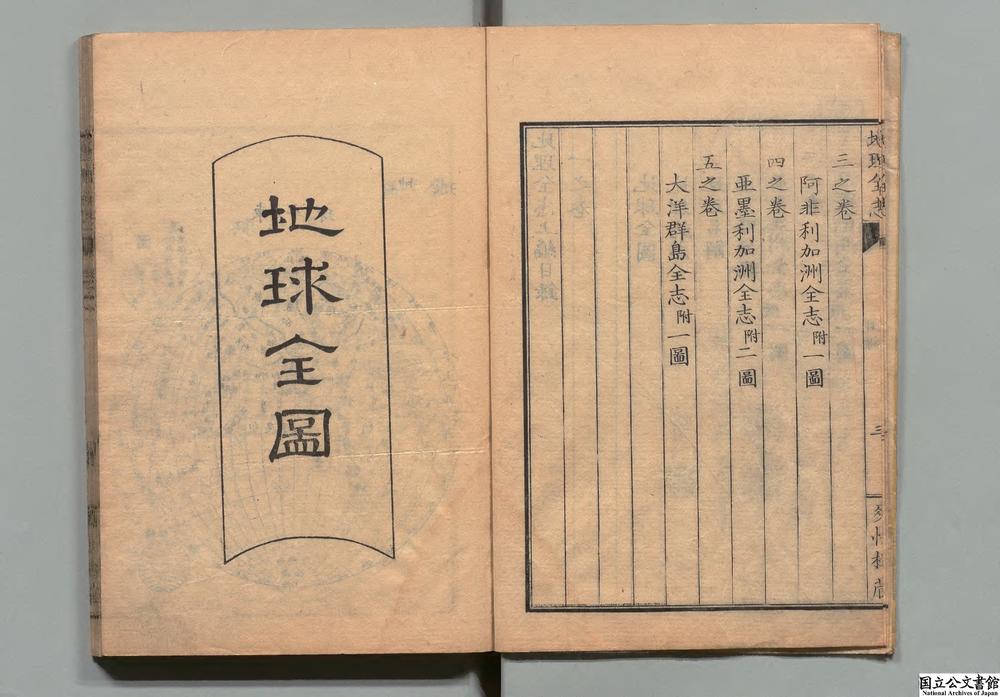 地理全志
三
三之卷
阿非利加洲全志 附一圖
四之卷
亜墨利加洲全志 附二圖
五之卷
大洋群島全志 附一圖
地球全圖
国立公文書館
National Archives of Japan